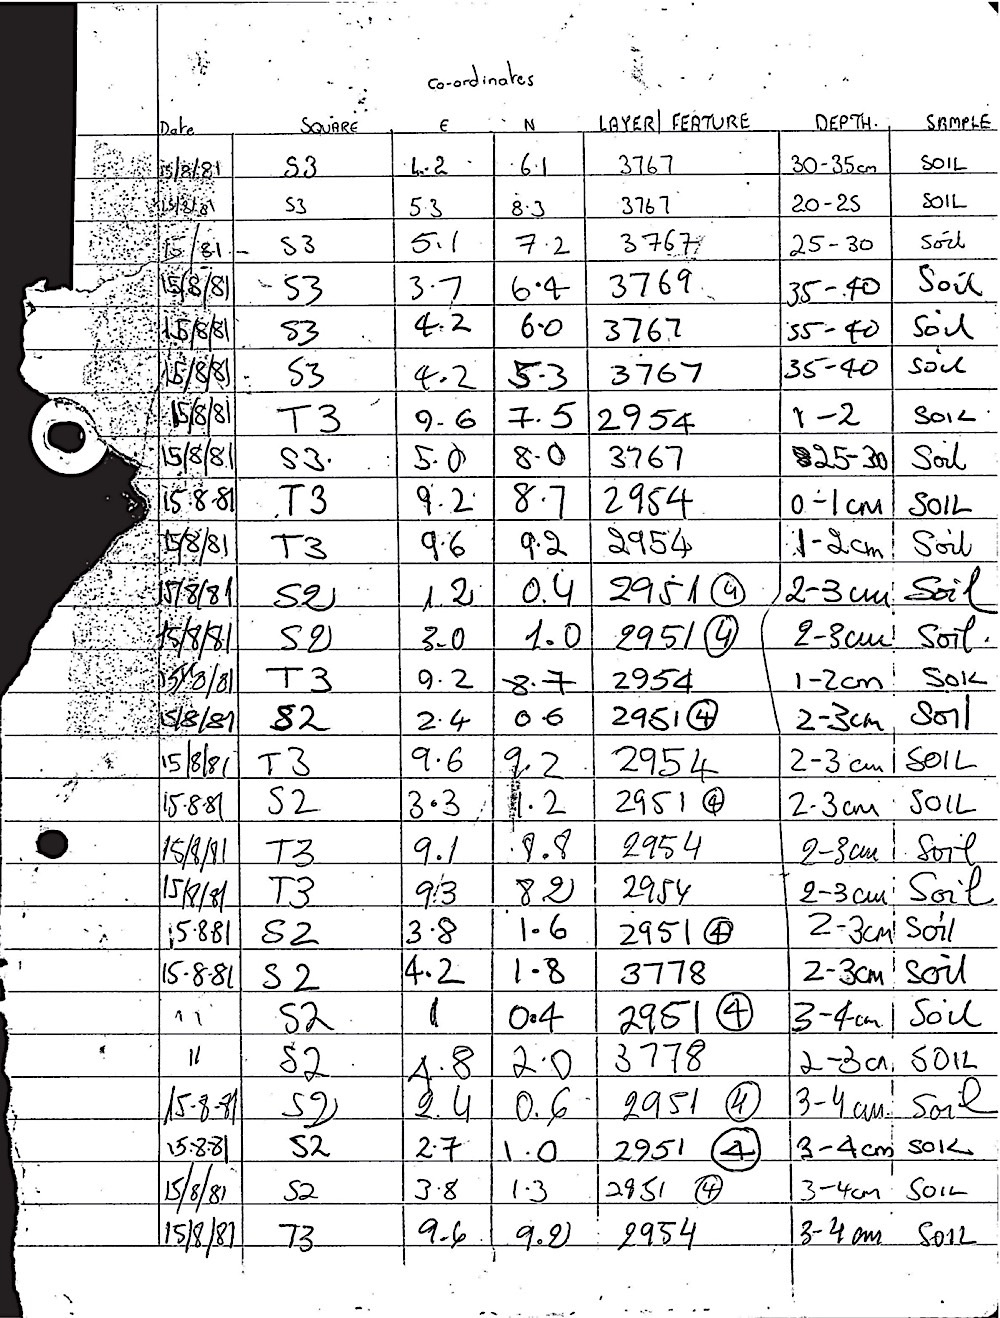 Co-ordinates
Date SQUARE E N LAYER/ FEATURE DEPTH. SAMPLE
15/8/81 S3 4.2 6.1 3767 30-35cm SOIL
15/8/81 S3 5.3 8.3 3767 20-25 SOIL
15/ /81 S3 5.1 7.2 3767 25-30 Soil
15/8/81 S3 3.7 6.4 3769 35-40 Soil
15/8/81 S3 4.2 6.0 3767 35-40 Soil
15/8/81 S3 4.2 5.3 3767 35-40 Soil
15/8/81 T3 9.6 7.5 2954 1-2 SOIL
15/8/81 S3. 5.0 8.0 3767 25-30 Soil
15.8.81 T3 9.2 8.7 2954 0-1cm SOIL
15/8/81 T3 9.6 9.2 2954 1-2cm Soil
15/8/81 S2 1.2 0.4 2951 ④ 2-3cm Soil
15/8/81 S2 3.0 1.0 2951 ④ 2-3cm Soil.
15/8/81 T3 9.2 8.7 2954 1-2cm SOIL
15/8/81 S2 2.4 0.6 2951 ④ 2-3cm Soil
15/8/81 T3 9.6 9.2 2954 2-3cm SOIL
15.8.81 S2 3.3 1.2 2951 ④ 2-3cm SOIL
15/8/81 T3 9.1 8.8 2954 2-3cm Soil
15/8/81 T3 9.3 8.2 2954 2-3cm Soil
15.8.81 S2 3.8 1.6 2951 ④ 2-3cm Soil
15.8.81 S2 4.2 1.8 3778 2-3cm Soil
" S2 1 0.4 2951 ④ 3-4cm Soil
" S2 4.8 2.0 3778 2-3cm. SOIL
15-8-81 S2 2.4 0.6 2951 ④ 3-4cm. Soil
15.8.81 S2 2.7 1.0 2951 ④ 3-4cm SOIL
15/8/81 S2 3.8 1.3 2951 ④ 3-4cm SOIL
15/8/81 T3 9.6 9.2 2954 3-4cm SOIL